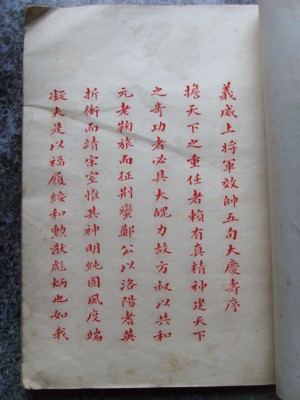 義威上將軍效帥五旬大慶壽序
擔天下之重任者賴有真精神建天下
之奇功者必具大魄力故方叔以共和
元老鞠旅而征荆蠻鄭公以洛陽耆英
折衝而靖宗室惟其神明純固風度端
凝夫是以福履綏和勲猷彪炳也如我